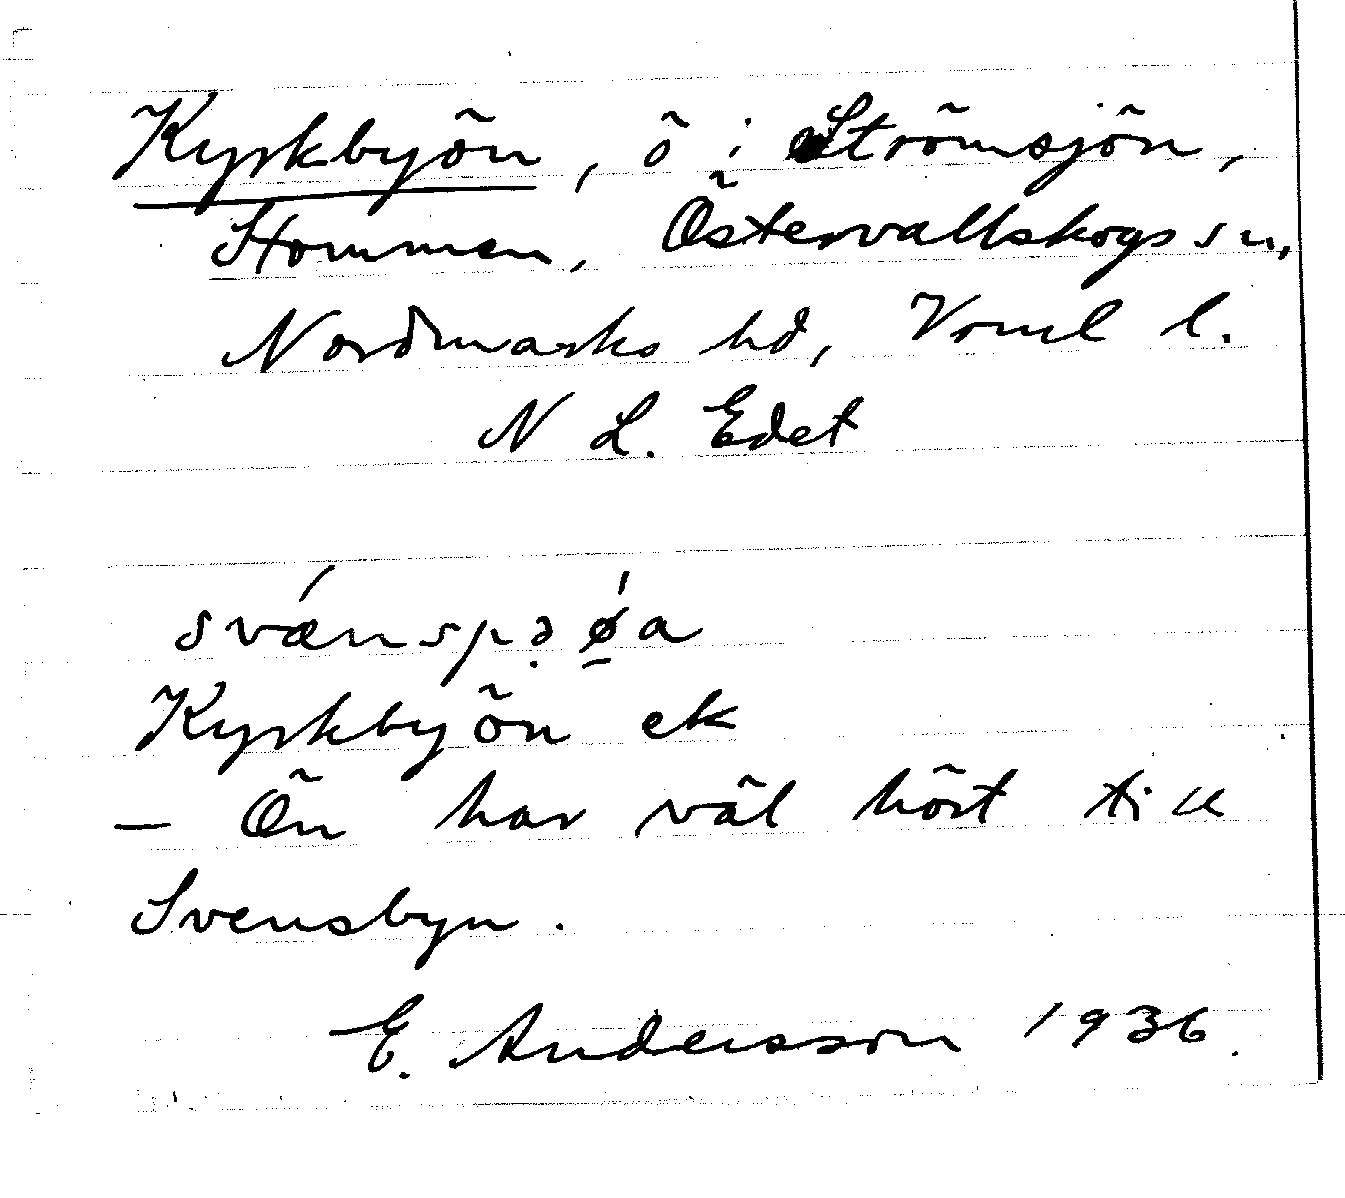 Kyrkbyön, ö i Strömsjön,
Stommen, Östervallskogs sn,
Nordmarks hd, Vrml l.
N L. Edet
svǽnspə̣ ǿ̠a
Kyrkbyön ek
— Ön har väl hört till
Svensbyn.
E. Andersson 1936.